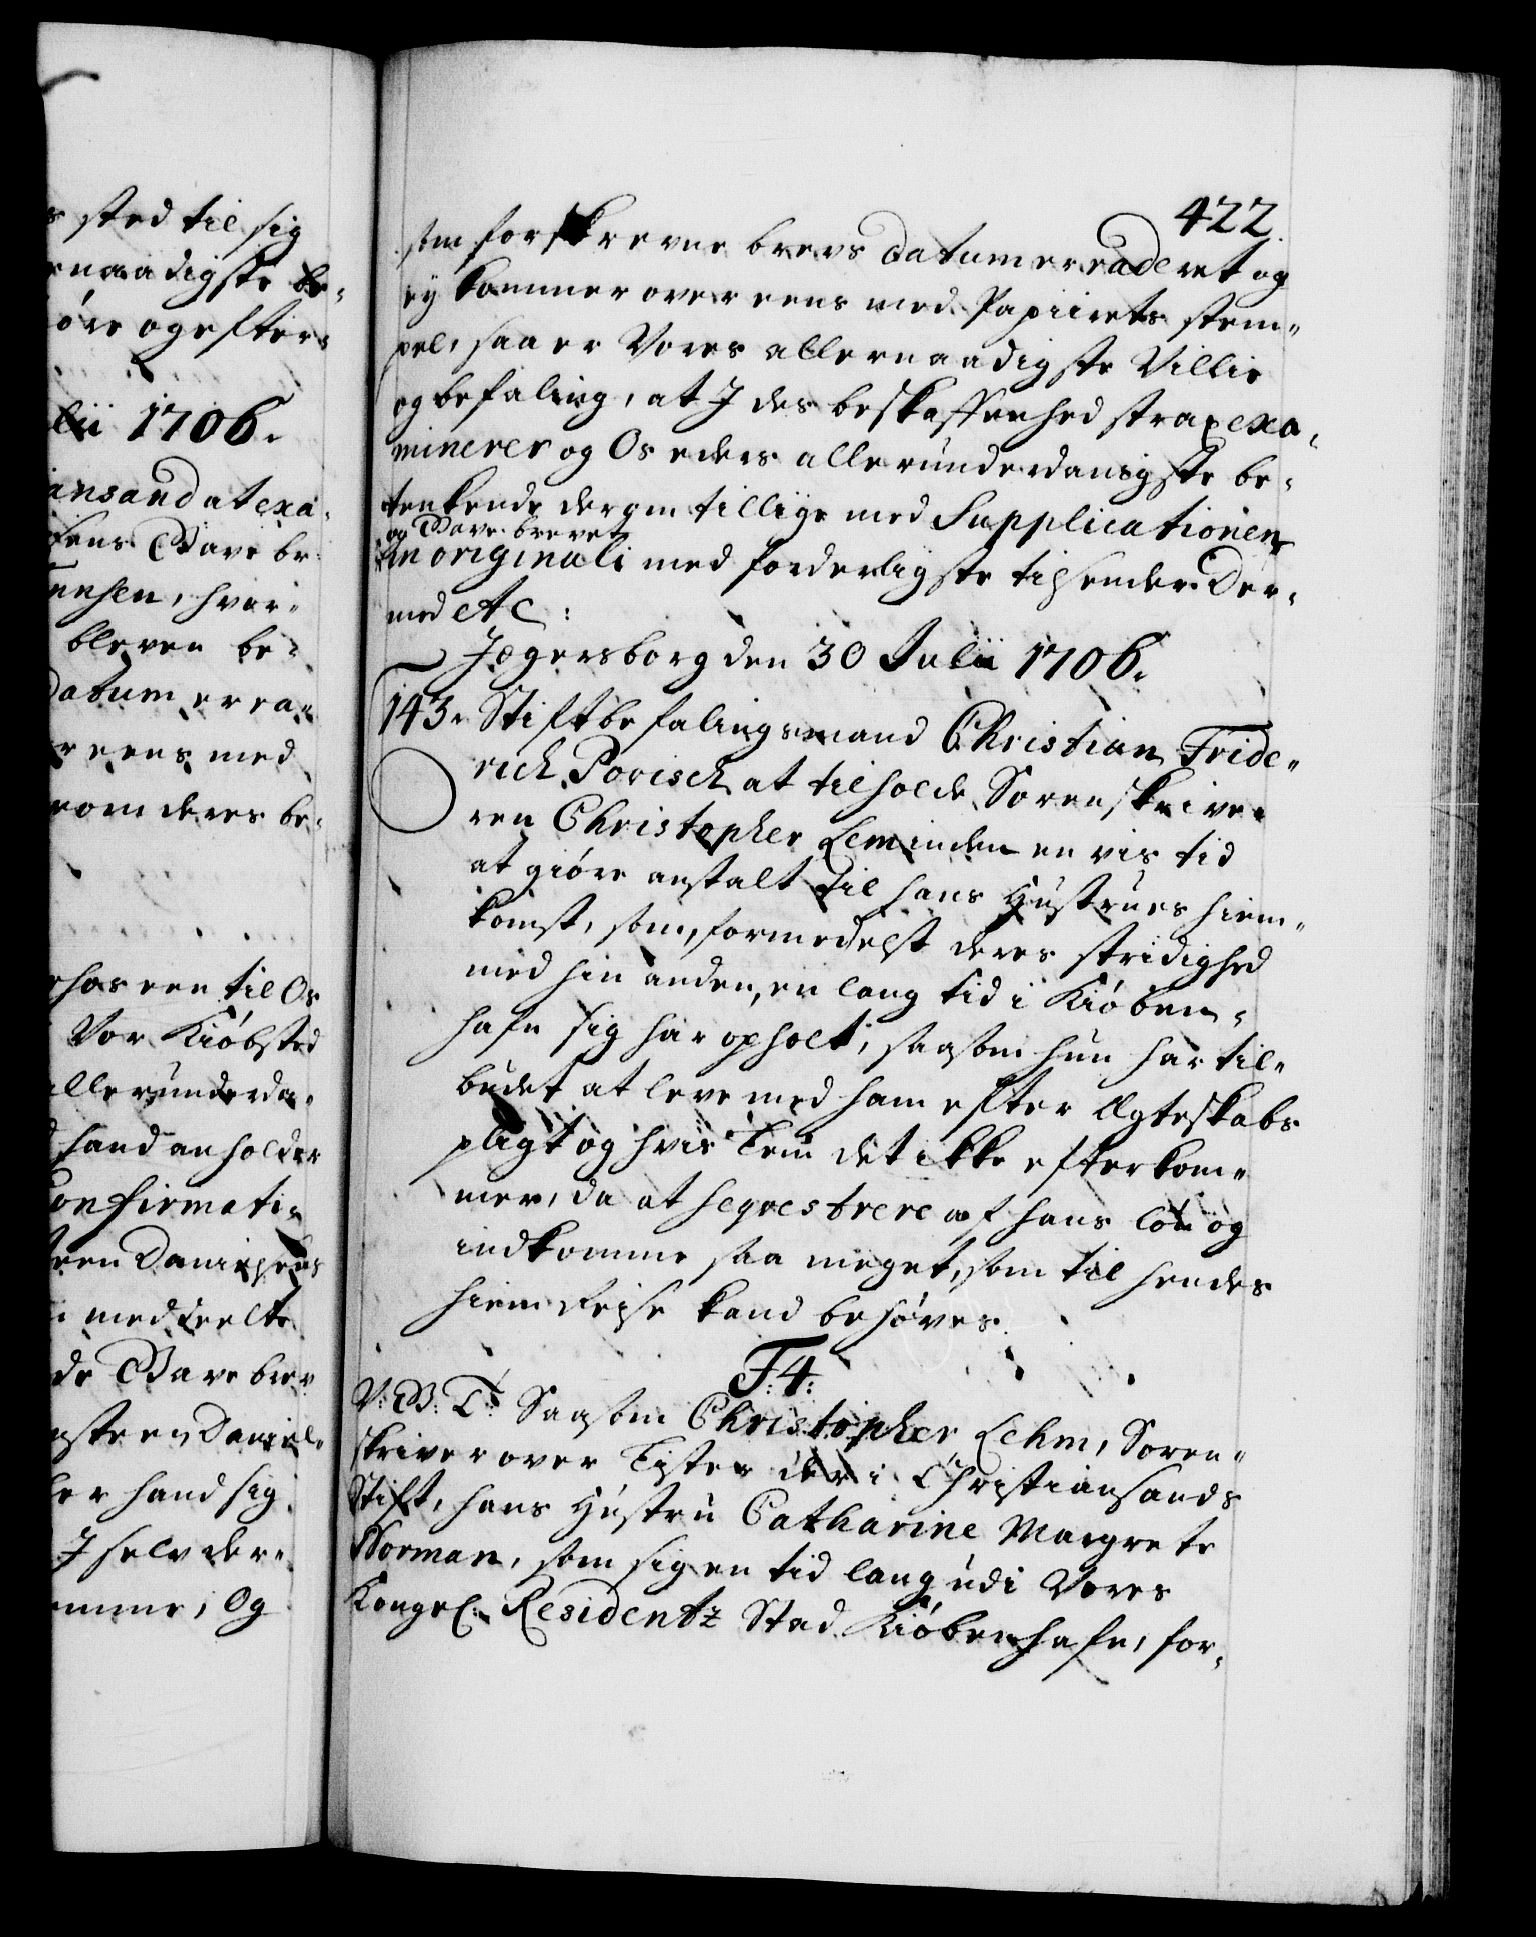 s sted til sig
naadigste be-
øre og efter-
lii 1706.
ansand at exa-
fens Gave br
ensen, hvor-
bleven be-
Datum er ra-
r eens med
rom deres be-
hos een til Os
Vor Kiøbsted
allerunderda-
hand anholder
Confirmati-
steen Danielsens
meddeelte
de Gave brev
steen Daniel-
er hand sig
I selv der-
mme, Og
422.
som forskrevne brevs datum er raderet og
ey kommer over eens med Papiirets stem-
pel, saa er Vores allernaadigste Villie
og befaling, at I des beskaffenhed strax exa-
minerer og Os eders allerunderdanigste be-
tenkende derom tillige med Supplicationen
og Gave brevet
in originali med forderligste tilsender. Der-
med etc:
Jegersborg den 30 Julii 1706.
143. Stiftbefalingsmand Christian Fride-
rich Povisch at tilholde Sorenskrive-
ren Christopher Lem inden en vis tid
at giøre anstalt til hans Hustrues hiem-
komst, som, formedelst deres stridighed
med hin anden, en lang tid i Kiøben-
hafn sig har opholt, saasom hun har til-
budet at leve med ham efter Ægteskabs
pligt og hvis Lem det ikke efterkom-
mer, da at seqvestrere af hans løn og
indkomme saa meget, som til hendes
hiem Reise kand behøves.
F:4:
V: G: T: Saasom Christopher Lehm, Soren-
skriver over Lister der i Christiansands
Stift, hans Hustru Catharine Margrete
Norman, som sig en tid lang udi Vores
Kongel: Residentz Stad Kiøbenhafn, for-